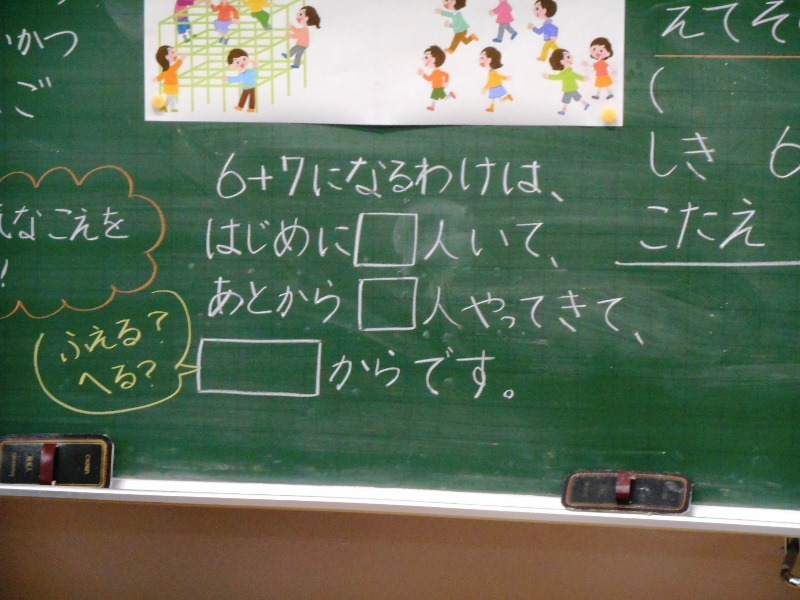 かつ
ご
えてそ
(
しき 6
こたえ
なこえを
!
6+7になるわけは、
はじめに□人いて、
あとから□人やってきて、
□からです。
ふえる?
へる?